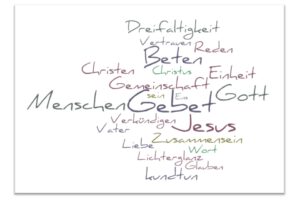 Dreifaltigkeit
Vertrauen Reden
Beten
Christen Christus Einheit
Gemeinschaft
sein Ein Gott
Menschen Gebet
Verkündigen Jesus
Vater
Liebe Zusammensein
Wort
Lichterglanz
Glauben
kundtun